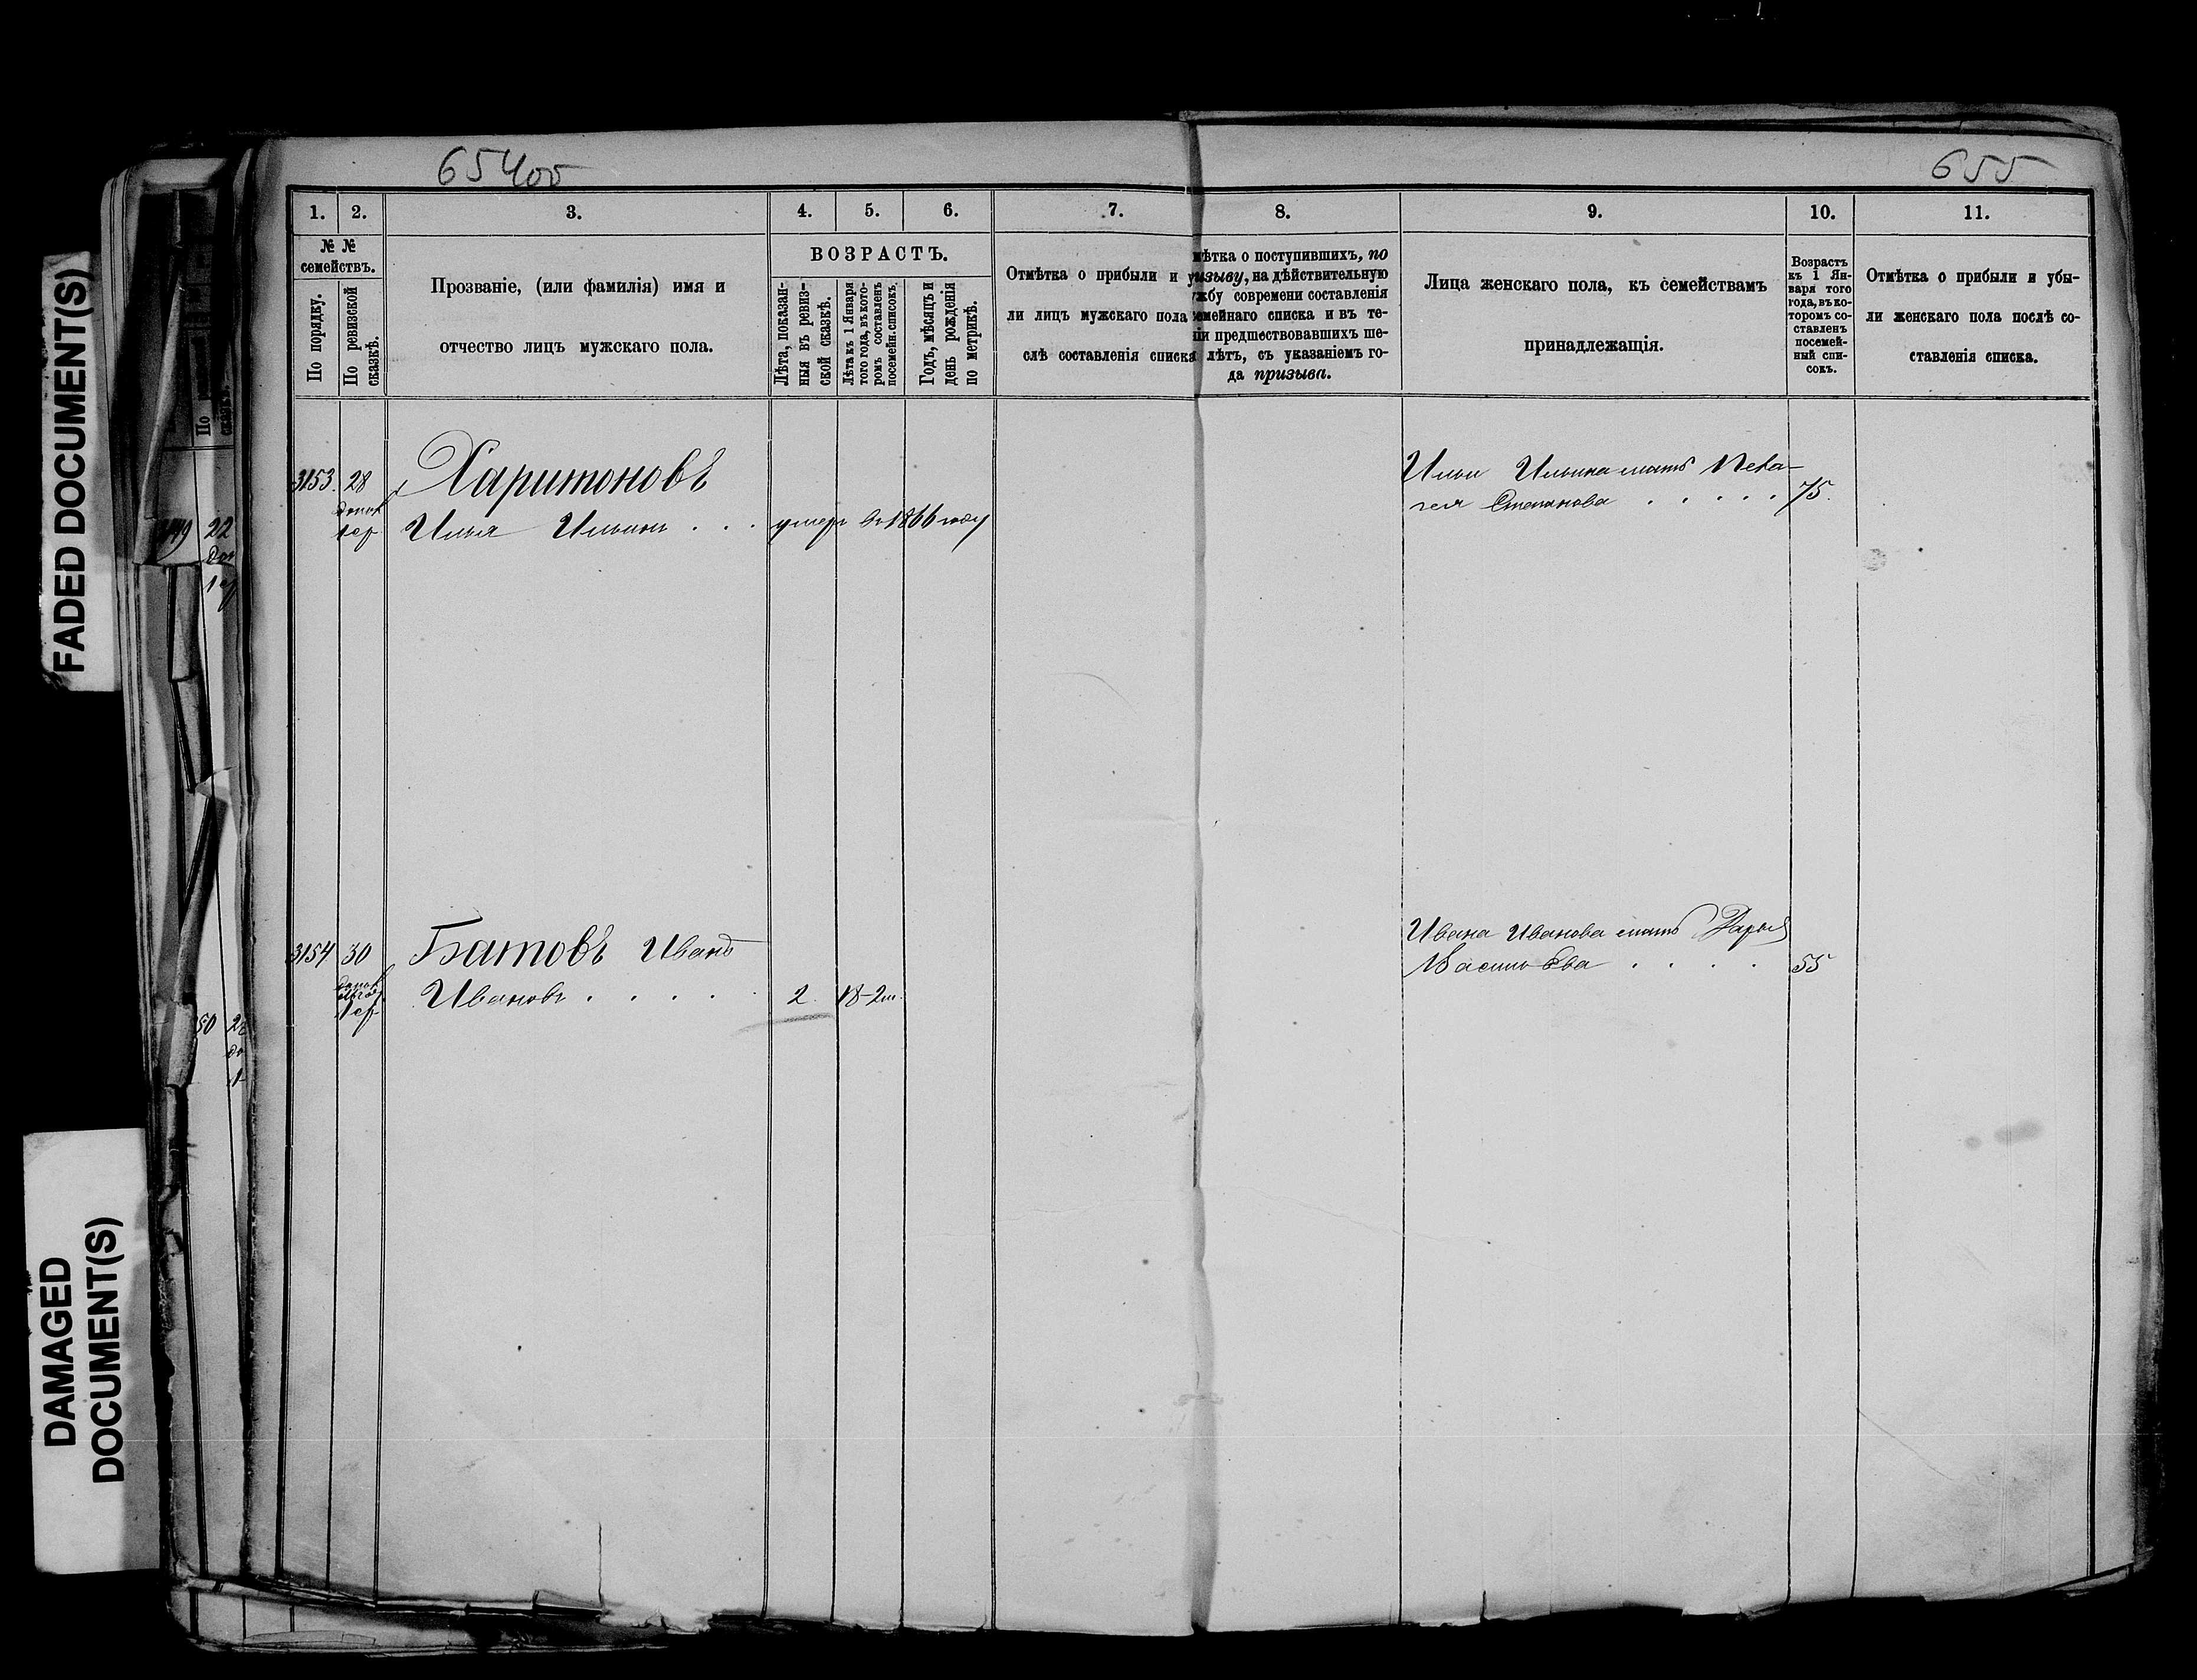 FADED DOCUMENT(S)
DAMAGED
DOCUMENT(S)
654об
655
1. 2. 3. 4. 5. 6. 7. 8. 9. 10. 11.
№ №
семействъ.
По порядку.
По ревизской
сказкѣ.
Прозваніе, (или фамилія) имя и
отчество лицъ мужскаго пола.
ВОЗРАСТЪ.
Лѣта, показан-
ныя въ ревиз-
ской сказкѣ.
Лѣта къ 1 Января
того года, въ кото-
ромъ составленъ
посемейн. списокъ.
Годъ, мѣсяцъ и
день рожденія
по метрикѣ.
Отмѣтка о прибыли и у
ли лицъ мужскаго пола
слѣ составленія списка
мѣтка о поступившихъ, по
ризыву, на дѣйствительную
жбу современи составленія
семейнаго списка и въ те-
ніи предшествовавшихъ ше-
лѣтъ, съ указаніемъ го-
да призыва.
Лица женскаго пола, къ семействамъ
принадлежащія.
Возрастъ
къ 1 Ян-
варя того
года, въ ко-
торомъ со-
ставленъ
посемей-
ный спи-
сокъ.
Отмѣтка о прибыли и убы-
ли женскаго пола послѣ со-
ставленія списка.
3153. 28 Харитоновъ
допол
1 ср Илья Ильинъ . . . умеръ въ 1866 году
Ильи Ильина мать Пела-
гея Степанова . . . . . 75.
3154 30 Батовъ Иванъ
допол
1 ср Ивановъ . . . . . 2. 18-2м.
Ивана Иванова мать Дарья
Васильева . . . . 55
22
50